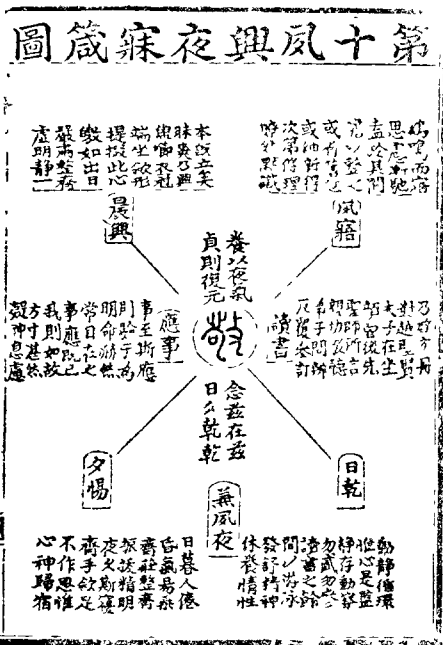 第十夙興夜寐箴圖
鷄鳴而寤
思慮漸馳
盍於其間
澹以整之
或省舊愆
或紬新得
次第條理
瞭然默識
夙寤
本旣立矣
昧爽乃興
盥櫛衣冠
端坐斂形
提掇此心
皦如出日
嚴肅整齊
虛明靜一
晨興
養以夜氣
貞則復元
敬
讀書
乃啓方冊
對越聖賢
夫子在坐
顔曾後先
聖師所言
親切敬聽
弟子問辨
反覆參訂
應事
事至斯應
則驗于爲
明命赫然
常目在之
事應旣已
我則如故
方寸湛然
凝神息慮
念玆在玆
日夕乾乾
日乾
動靜循環
惟心是監
靜存動察
勿貳勿參
讀書之餘
間以游泳
發舒精神
休養情性
兼夙夜
夕惕
日暮人倦
昏氣易乘
齋莊整齊
振拔精明
夜久斯寢
齊手斂足
不作思惟
心神歸宿